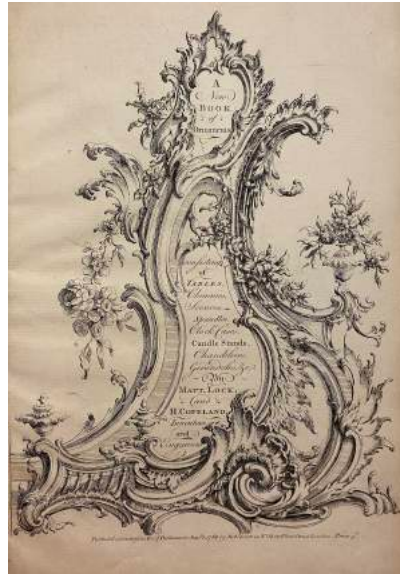 A
New
BOOK
of
ORNAMENTS
Consisting
of
TABLES,
Chimnies,
Sconces,
Spandles,
Clock Cases,
Candle Stands,
Chandeliers,
Girandoles, &c.
By
MATT. LOCK,
and
H. COPELAND,
Inventors
and
Engravers
Publish'd according to Act of Parliament